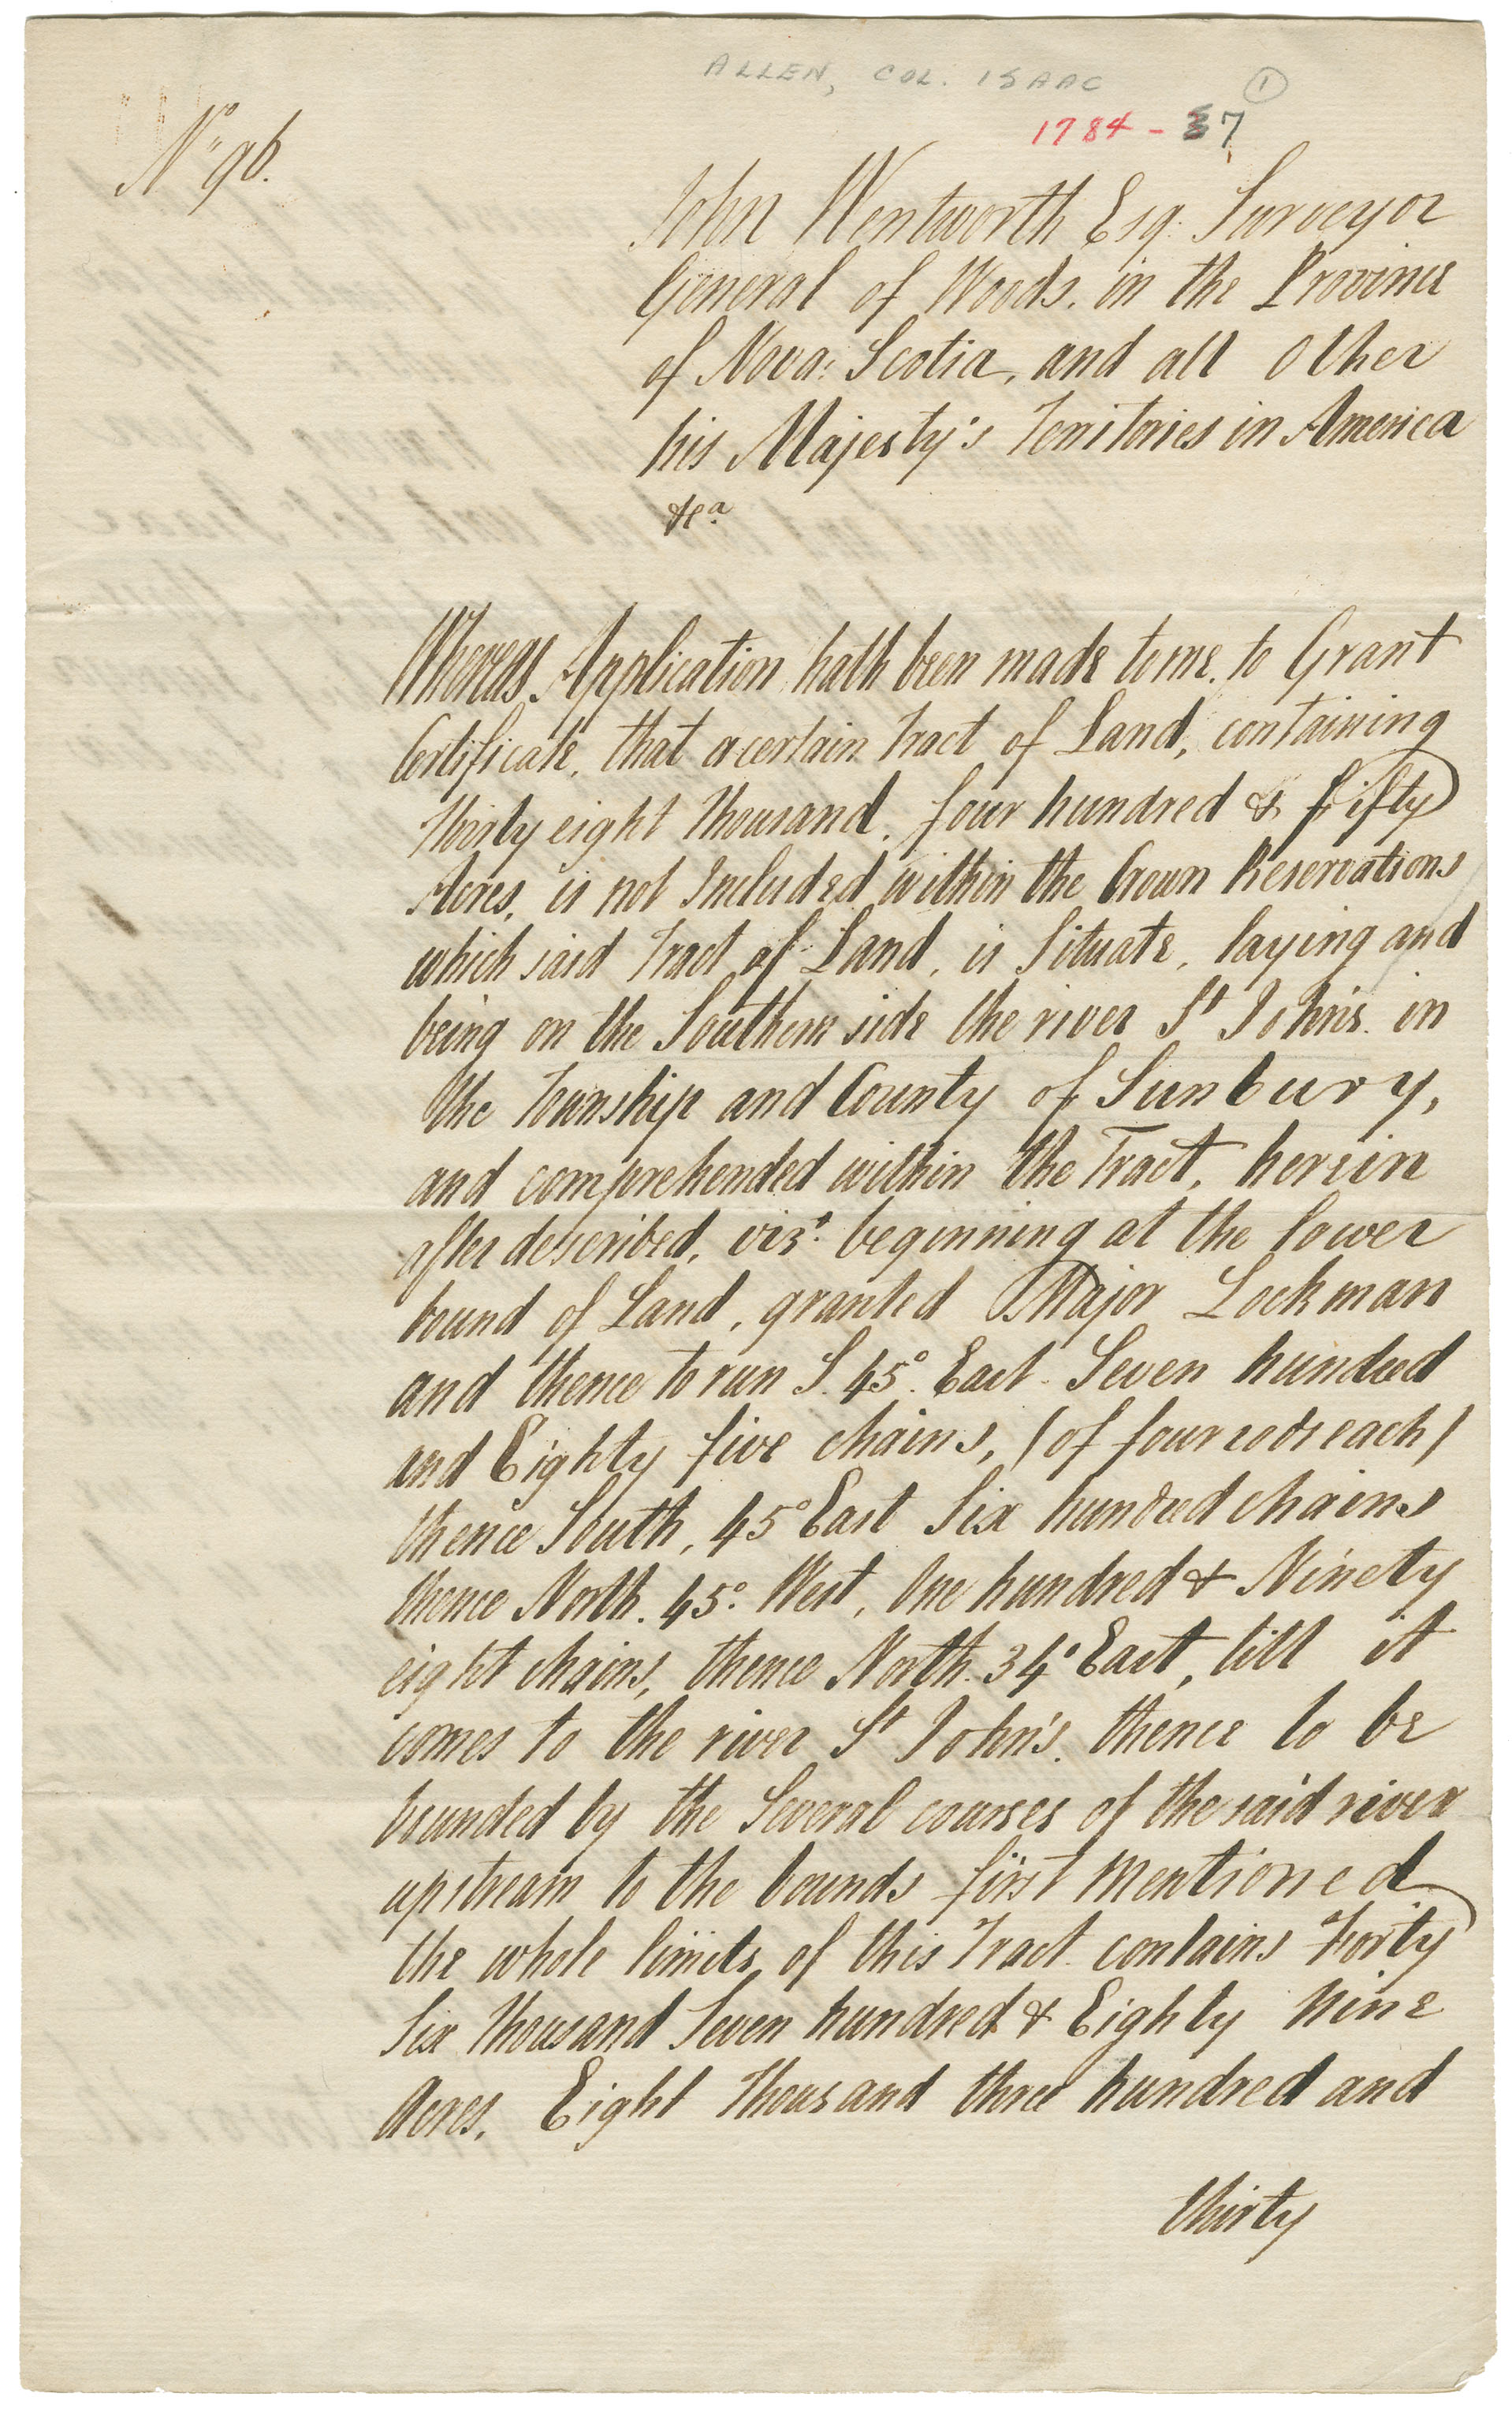 ALLEN, COL. ISAAC
1
1784 - 37
No 96.
John Wentworth Esq. Surveyor
General of Woods. in the Province
of Nova: Scotia, and all Other
his Majesty's Territories in America
&ca
Whereas Application hath been made to me. to Grant
Certificate, that a certain Tract of Land, containing
Thirty eight Thousand. four hundred & fifty
Acres, is not Included within the Crown Reservations
which said Tract of Land, is Situate, laying and
being on the Southern side the river St John's. in
the Township and County of Sunbury,
and comprehended within the Tract, herein
after described, vizt. beginning at the lower
bound of Land, granted Major Lockman
and thence to run S. 45°. East. Seven hundred
and Eighty five chains, (of four rods each)
thence South, 45° East Six hundred chains
thence North. 45° West, One hundred & Ninety
eight chains, thence North. 34° East, till it
comes to the river St John's. thence to be
bounded by the Several courses of the said river
upstream to the bounds first mentioned
the whole limits of this Tract contains Forty
Six Thousand Seven hundred & Eighty Nine
Acres. Eight Thousand three hundred and
thirty